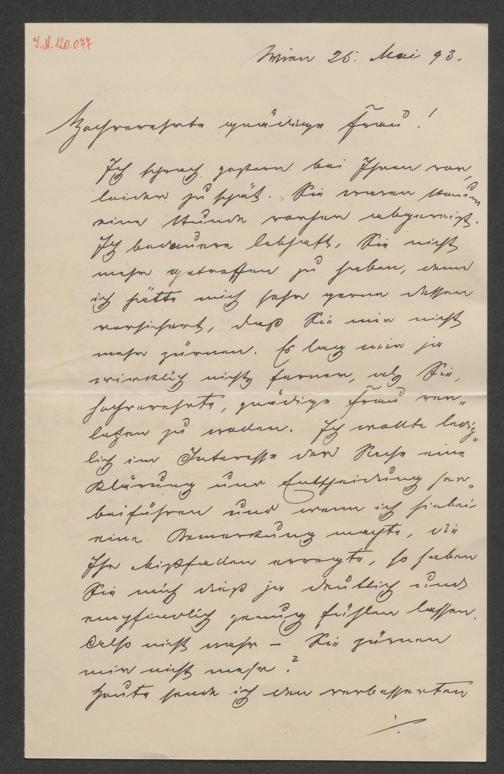 J.N. 120.077
Wien 26. Mai 93.
Hochverehrte gnädige Frau!
Ich sprach gestern bei Ihnen vor,
leider zu spät. Sie waren kaum
eine Stunde vorher abgereist.
Ich bedauere lebhaft, Sie nicht
mehr getroffen zu haben, denn
ich hätte mich sehr gerne dessen
versichert, daß Sie mir nicht
mehr zürnen. Es lag mir ja
wirklich nichts ferner, als Sie,
hochverehrte, gnädige Frau ver-
letzen zu wollen. Ich wollte ledig-
lich im Interesse der Sache eine
Klärung und Entscheidung her-
beiführen und wenn ich hiebei
eine Bemerkung machte, die
Ihr Mißfallen erregte, so haben
Sie mich dieß ja deutlich und
empfindlich genug fühlen lassen.
Also nicht wahr – Sie zürnen
mir nicht mehr?
Heute sende ich den verbesserten
./.